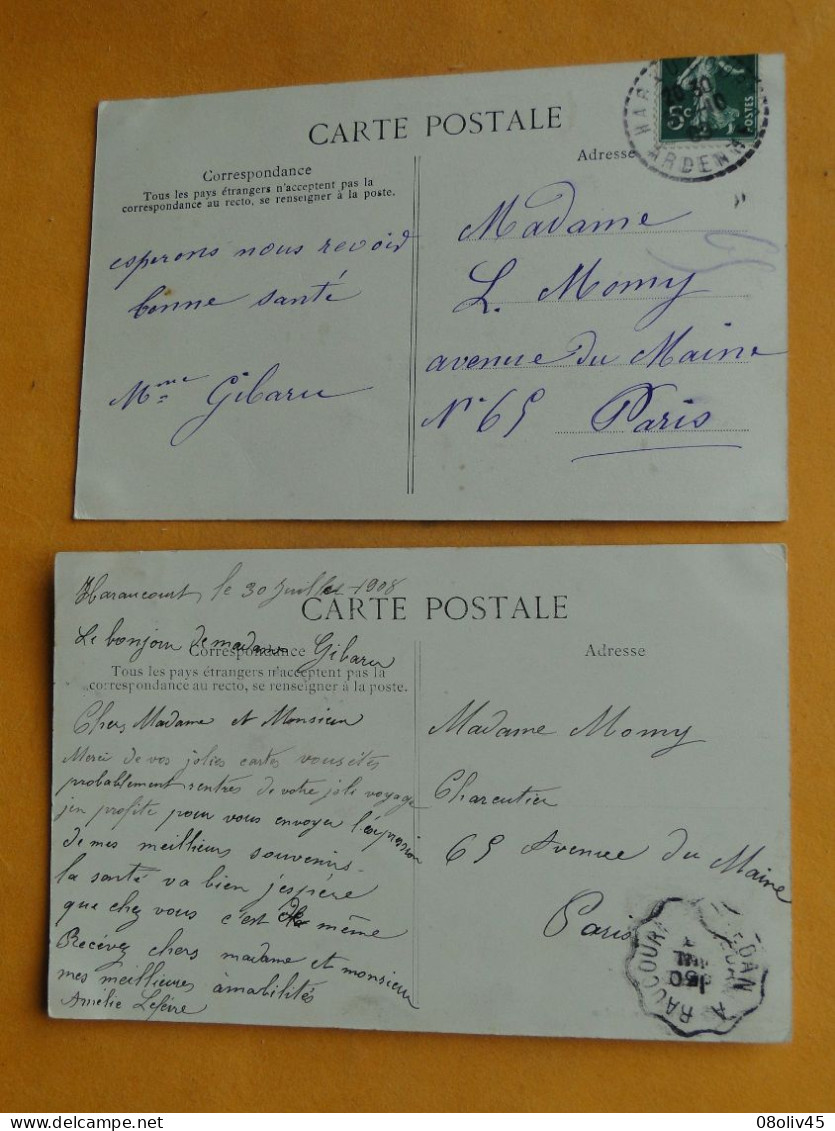 CARTE POSTALE
Correspondance
Tous les pays étrangers n'acceptent pas la
correspondance au recto, se renseigner à la poste.
esperons nous revoir
bonne santé
Mme Gibaru
Adresse
5c POSTES
ARDENN
Madame
L. Momy
avenue du Maine
N° 65 Paris
Haraucourt, le 30 Juillet 1908
CARTE POSTALE
Le bonjour de madame Gibaru
Correspondance
Tous les pays étrangers n'acceptent pas la
correspondance au recto, se renseigner à la poste.
Chers Madame et Monsieur
Merci de vos jolies cartes vous êtes
probablement rentrés de votre joli voyage
j'en profite pour vous envoyer l'expression
de mes meilleurs souvenirs.
la santé va bien j'espère
que chez vous c'est de même
Recevez chers madame et monsieur
mes meilleures amabilités
Amélie Lefèvre
Adresse
Madame Momy
Charcutier
65 Avenue du Maine
Paris
RAUCOURT A SEDAN
08oliv45